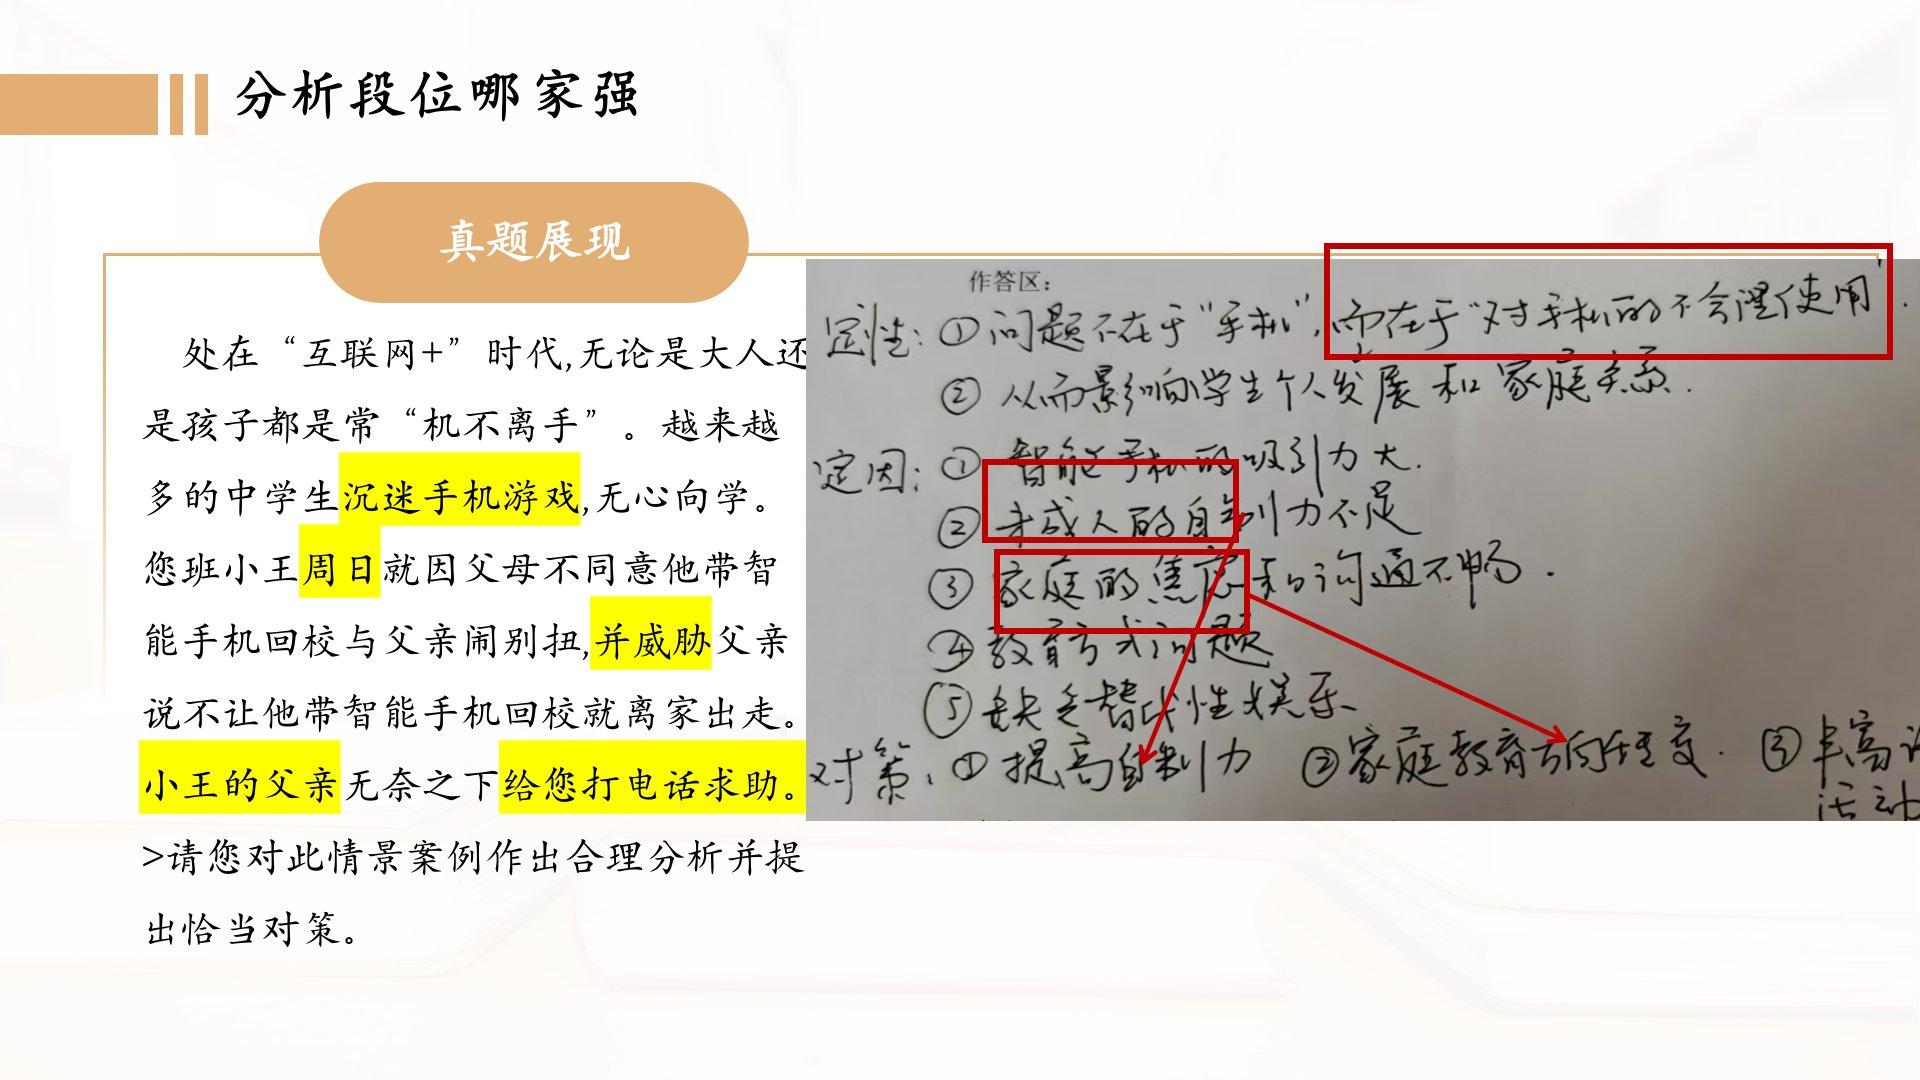 分析段位哪家强
真题展现
处在“互联网+”时代,无论是大人还
是孩子都是常“机不离手”。越来越
多的中学生沉迷手机游戏,无心向学。
您班小王周日就因父母不同意他带智
能手机回校与父亲闹别扭,并威胁父亲
说不让他带智能手机回校就离家出走。
小王的父亲无奈之下给您打电话求助。
>请您对此情景案例作出合理分析并提
出恰当对策。
作答区：
定性：①问题不在于“手机”，而在于“对手机的不合理使用”.
② 从而影响学生个人发展和家庭关系.
定因：① 智能手机的吸引力大.
② 未成人的自制力不足
③ 家庭的焦虑和沟通不畅.
④ 教育方式问题
⑤ 缺乏替代性娱乐、
对策：① 提高自制力 ②家庭教育方向 ③丰富
活动